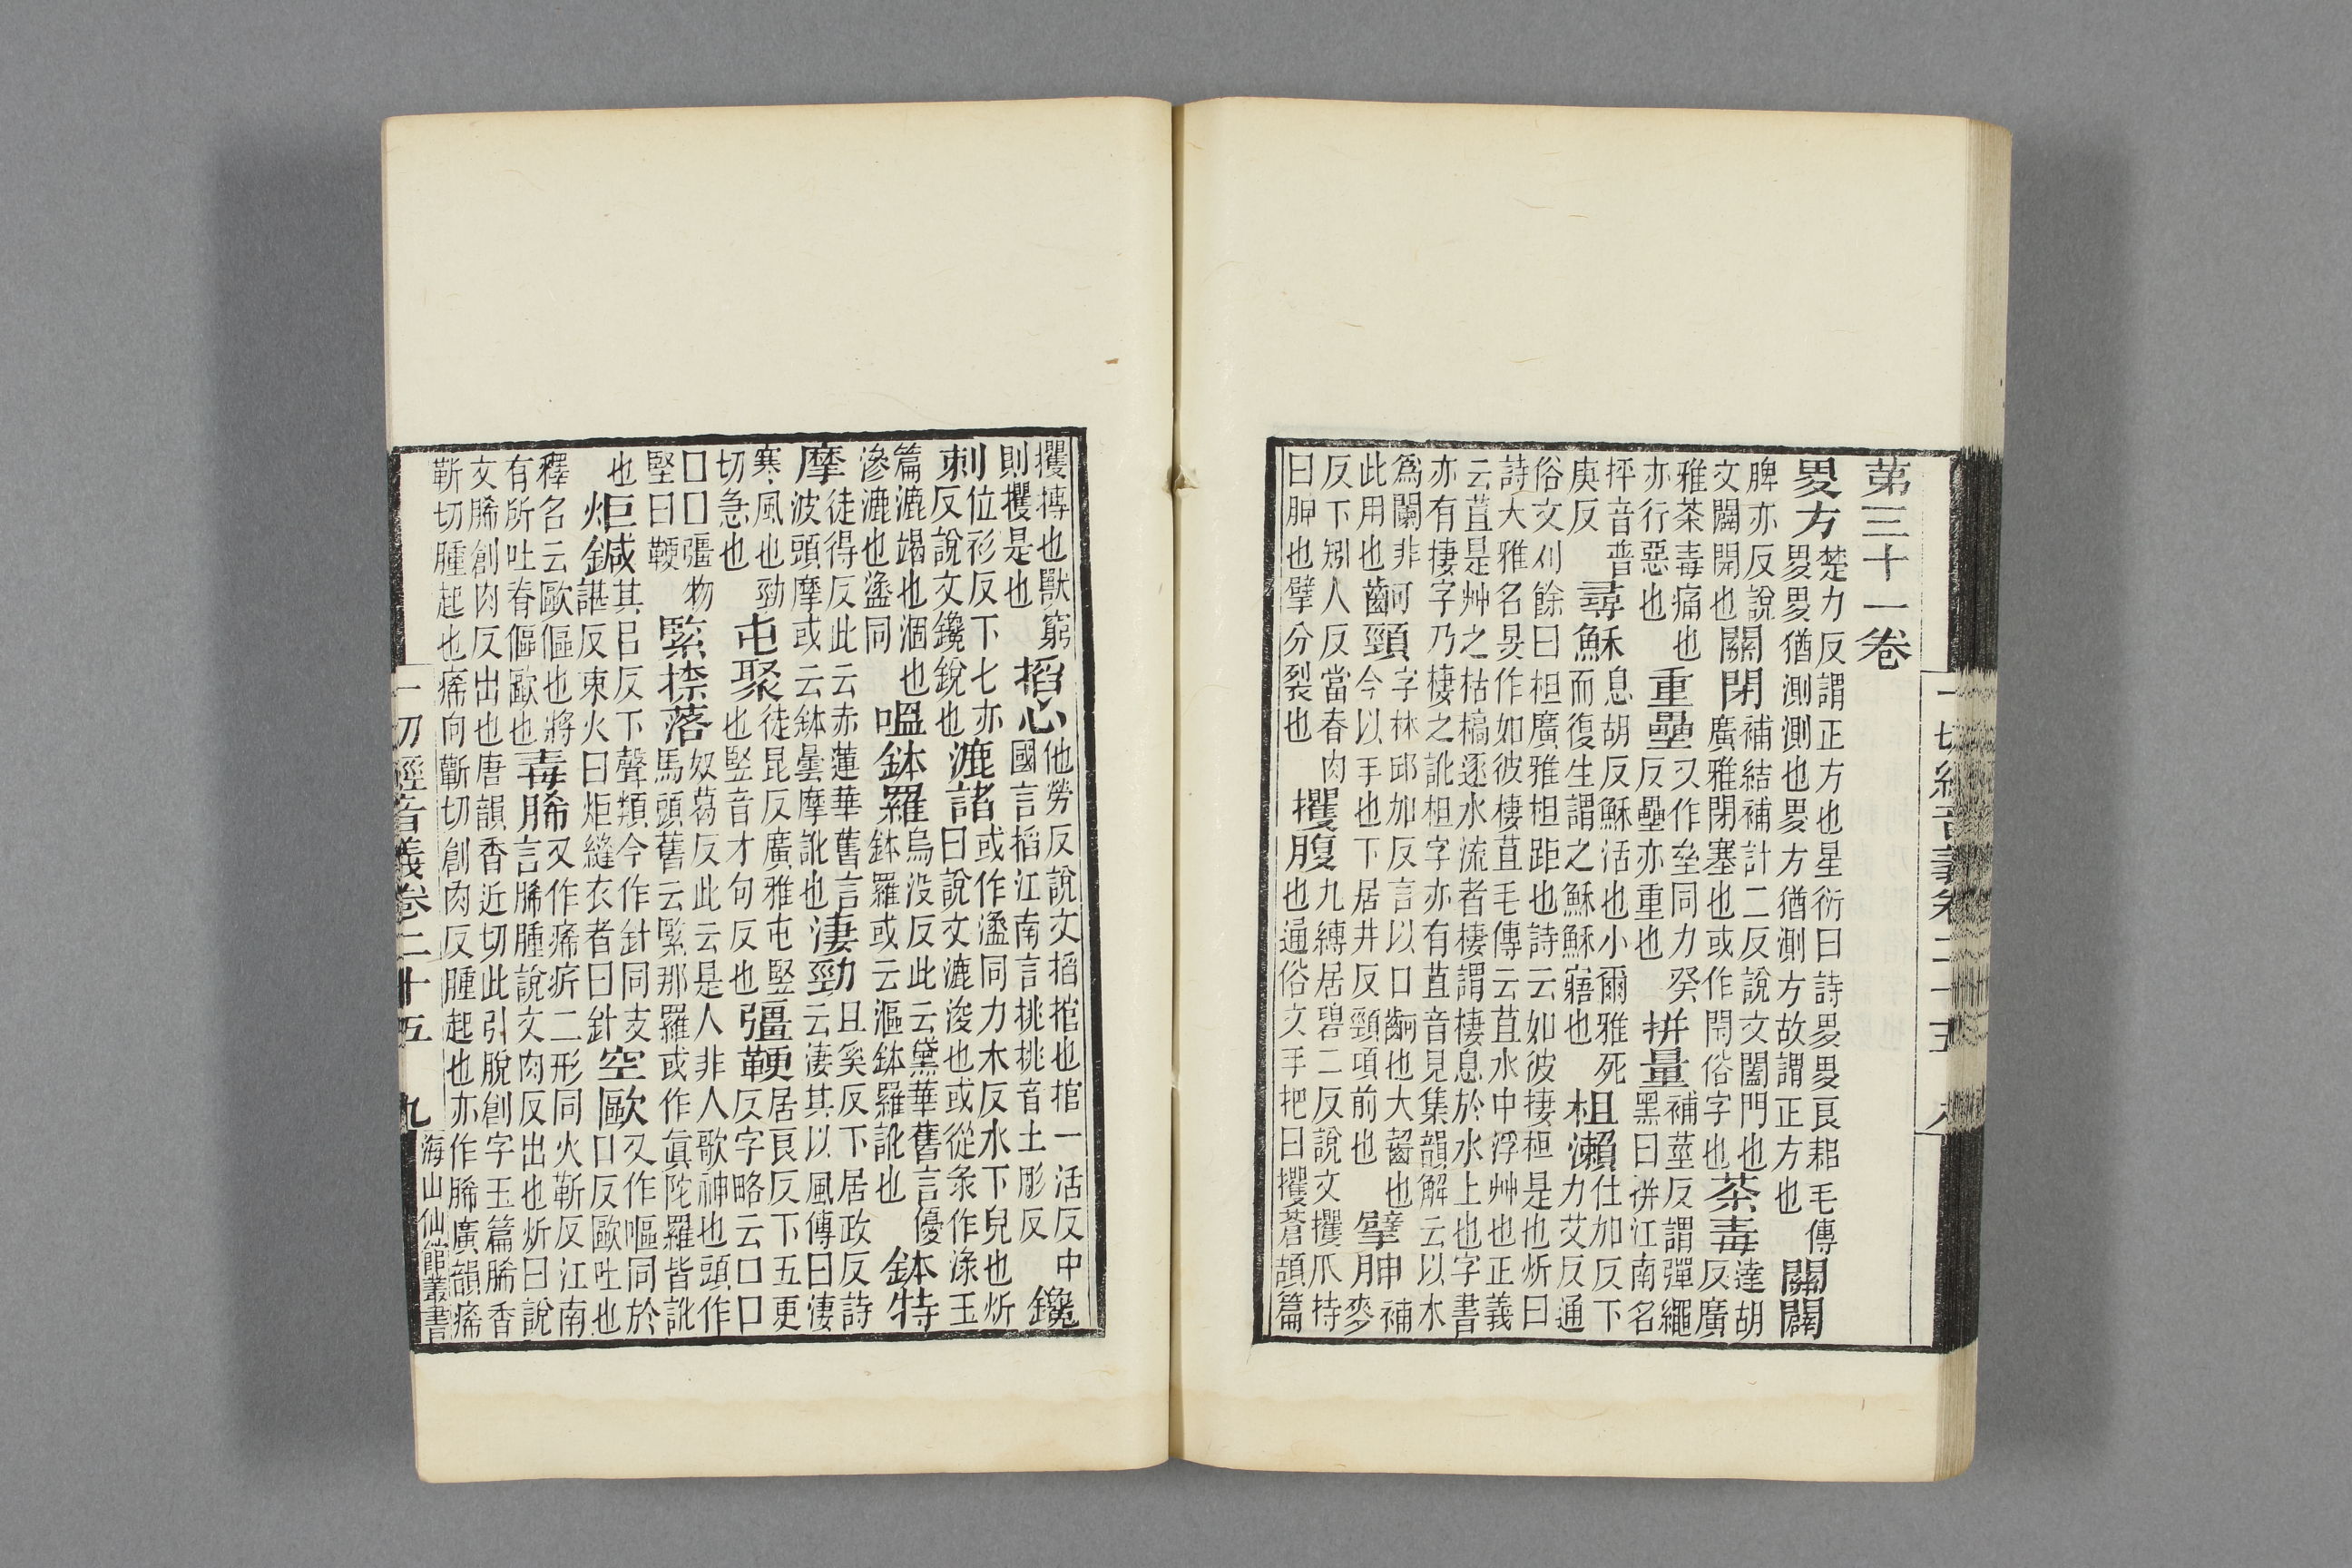 一切經音義卷二十五 八
第三十一卷
畟方
楚力反謂正方也星衍曰詩畟畟良耜毛傳
畟畟猶測測也畟方猶測方故謂正方也
關闢
脾亦反說
文闢開也
關閉
補結補計二反說文闔門也
廣雅閉塞也或作閇俗字也
荼毒
達胡
反廣
雅荼毒痛也
亦行惡也
重壘
又作垒同力癸
反壘亦重也
拼量
補莖反謂彈繩
黑曰拼江南名
抨音普
庚反
尋穌
息胡反穌活也小爾雅死
而復生謂之穌穌寤也
柤瀨
仕加反下
力艾反通
俗文刈餘曰柤廣雅柤距也詩云如彼捿柤是也炘曰
詩大雅名旻作如彼棲苴毛傳云苴水中浮艸也正義
云苴是艸之枯槁逐水流者棲謂棲息於水上也字書
亦有捿字乃棲之訛柤字亦有苴音見集韻解云以木
爲闌非可
此用也
頸
字林邱加反言以口也大齧也
今以手也下居井反頸項前也
擘胂
補
麥
反下矧人反當春肉
曰胂也擘分裂也
攫腹
九縛居碧二反說文攫爪持
也通俗文手把曰攫蒼頡篇
攫搏也獸窮
則攫是也
搯心
他勞反說文搯捾也捾一活反中
國言搯江南言挑挑音土彫反
鑱
刺
位衫反下七亦
反說文鑱銳也
漉諸
或作盝同力木反水下皃也炘
曰說文漉浚也或從彔作淥玉
篇漉竭也涸也
滲漉也盝同
嗢鉢羅
烏沒反此云黛華舊言優
鉢羅或云漚鉢羅訛也
鉢特
摩
徒得反此云赤蓮華舊言
波頭摩或云鉢曇摩訛也
淒勁
且奚反下居政反詩
云淒其以風傳曰淒
寒風也勁
切急也
屯聚
徒昆反廣雅屯竪
也竪音才句反也
彊鞕
居良反下五更
反字略云囗囗
囗囗彊物
堅曰鞕
緊捺落
奴葛反此云是人非人歌神也頭作
馬頭舊云緊那羅或作眞陀羅皆訛
也
炬鍼
其吕反下聲類今作針同支
諶反束火曰炬縫衣者曰針
空歐
又作嘔同於
口反歐吐也
釋名云歐傴也將
有所吐脊傴歐也
毒脪
又作㾙二形同火靳反江南
言脪腫說文肉反出也炘曰說
文脪創肉反出也唐韻香近切此引脫創字玉篇脪香
靳切腫起也㾙向靳切創肉反腫起也亦作脪廣韻㾙
一切經音義卷二十五 九 海山仙館叢書